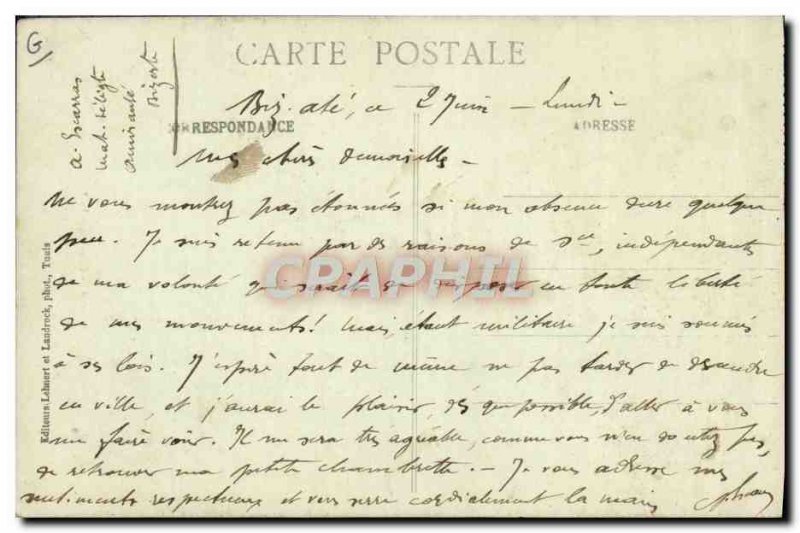 G
CARTE POSTALE
a. Escarras
mat. télégte
Amirauté
Bizerte
Biz. ce 2 Juin - Lundi -
CORRESPONDANCE
ADRESSE
Mes chères demoiselles -
Ne vous montrez pas étonnés si mon absence dure quelque
peu. Je suis retenu par des raisons de sce, indépendantes
de ma volonté qui serait de en toute liberté
de mes mouvements! Mais, étant militaire je suis soumis
à ses lois. J'espère tout de même ne pas tarder de descendre
en ville, et j'aurai le plaisir, dès que possible, d'aller à vous
me faire voir. Il me sera très agréable, comme vous n'en doutez pas,
de retrouver ma petite chambrette. - Je vous adresse mes
sentiments respectueux et vous serre cordialement la main
Editeurs Lehnert et Landrock, phot., Tunis
CPRAPHIL